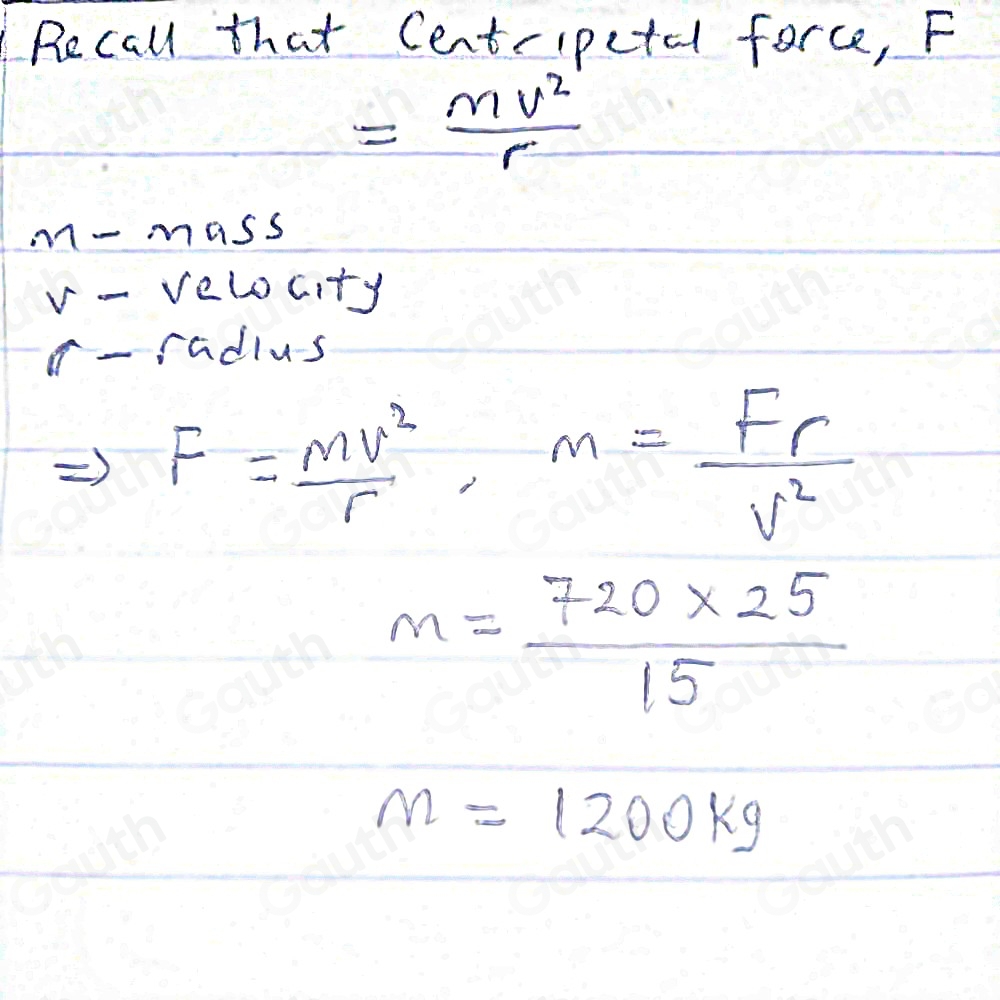 Recall that Centripetal force, F
= mv²/r
m - mass
v - velocity
r - radius
=> F = mv²/r , m = Fr/v²
m = 720 × 25/15
m = 1200kg
Gauth